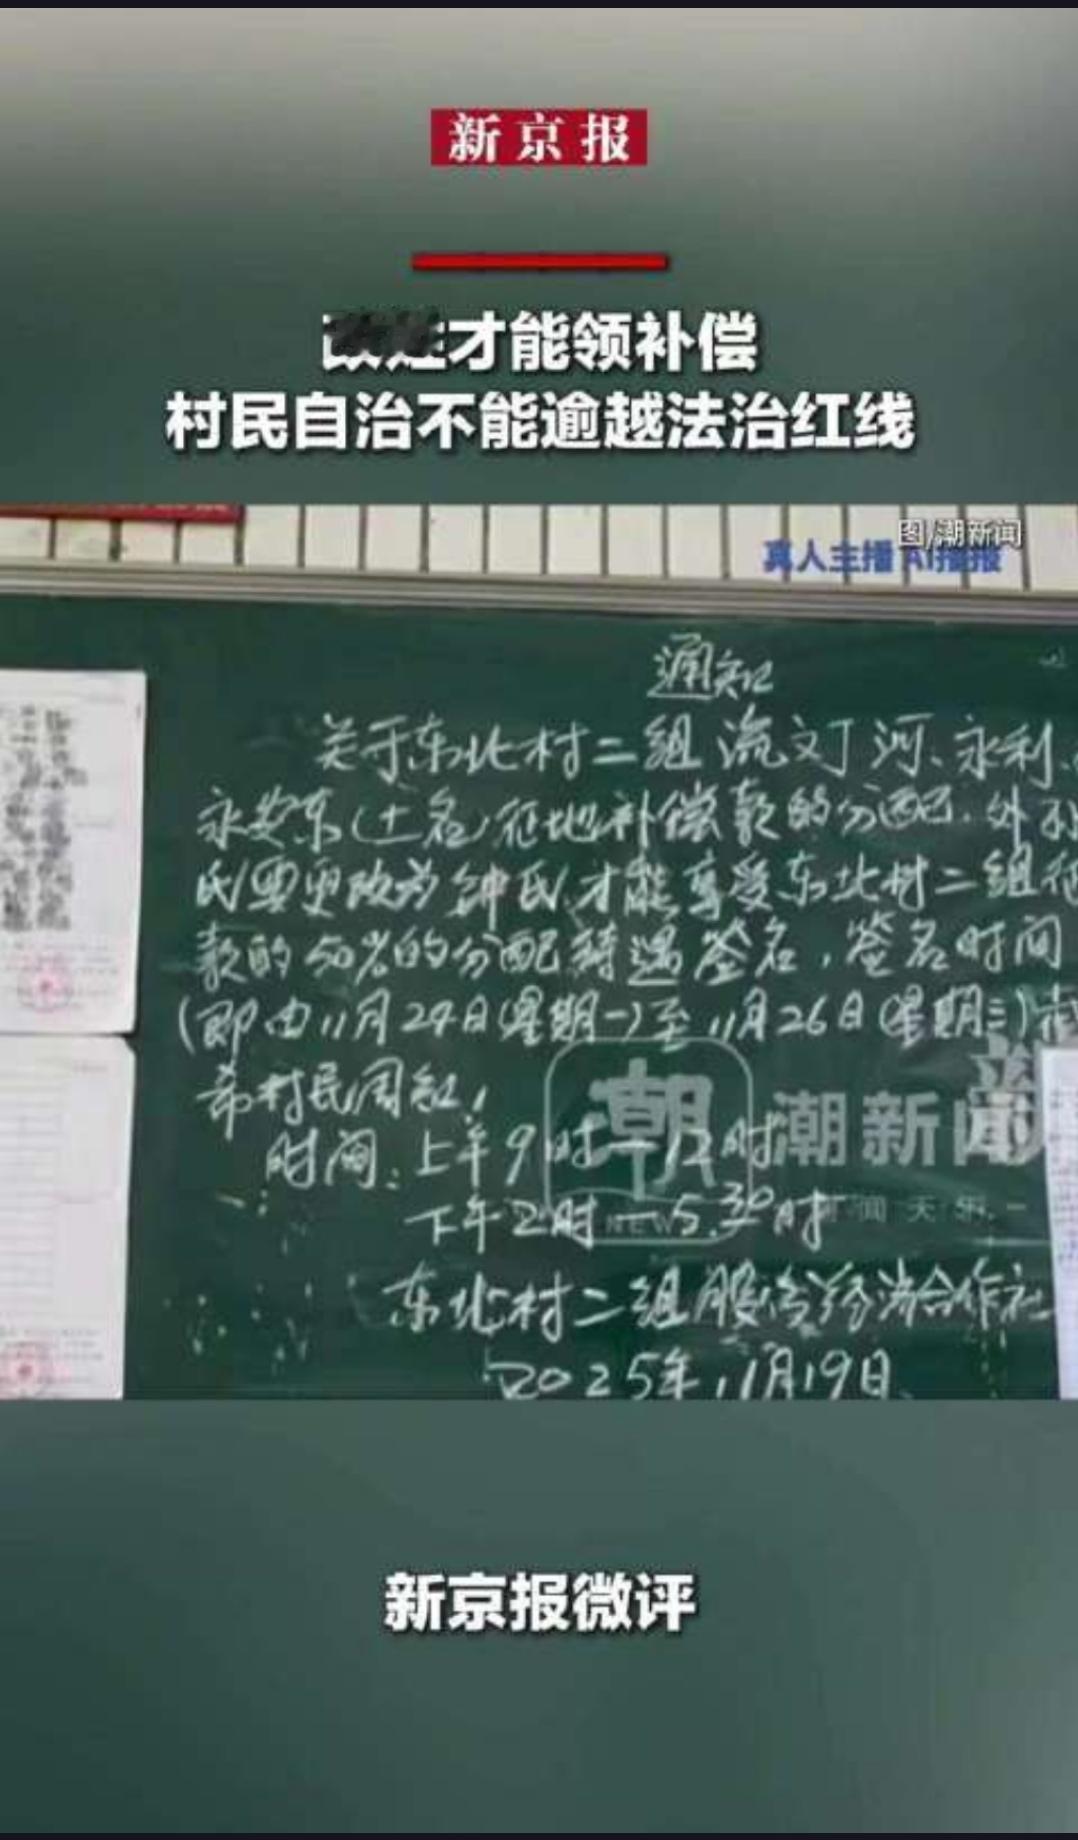 新京报
才能领补偿
村民自治不能逾越法治红线
图/潮新闻
真人主播 AI播报
通知
关于东北村二组流文丁河、永利、
永安东(土名)征地补偿款的分配.外
氏要更改为钟氏,才能享受东北村二组征
款的50%的分配待遇签名,签名时间
(即由11月24日(星期一)至11月26日(星期三)
希村民周知,
潮新闻
时间:上午9时—12时
下午2时—5.30时
NEWS
东北村二组股份经济合作社
2025年11月19日
新京报微评